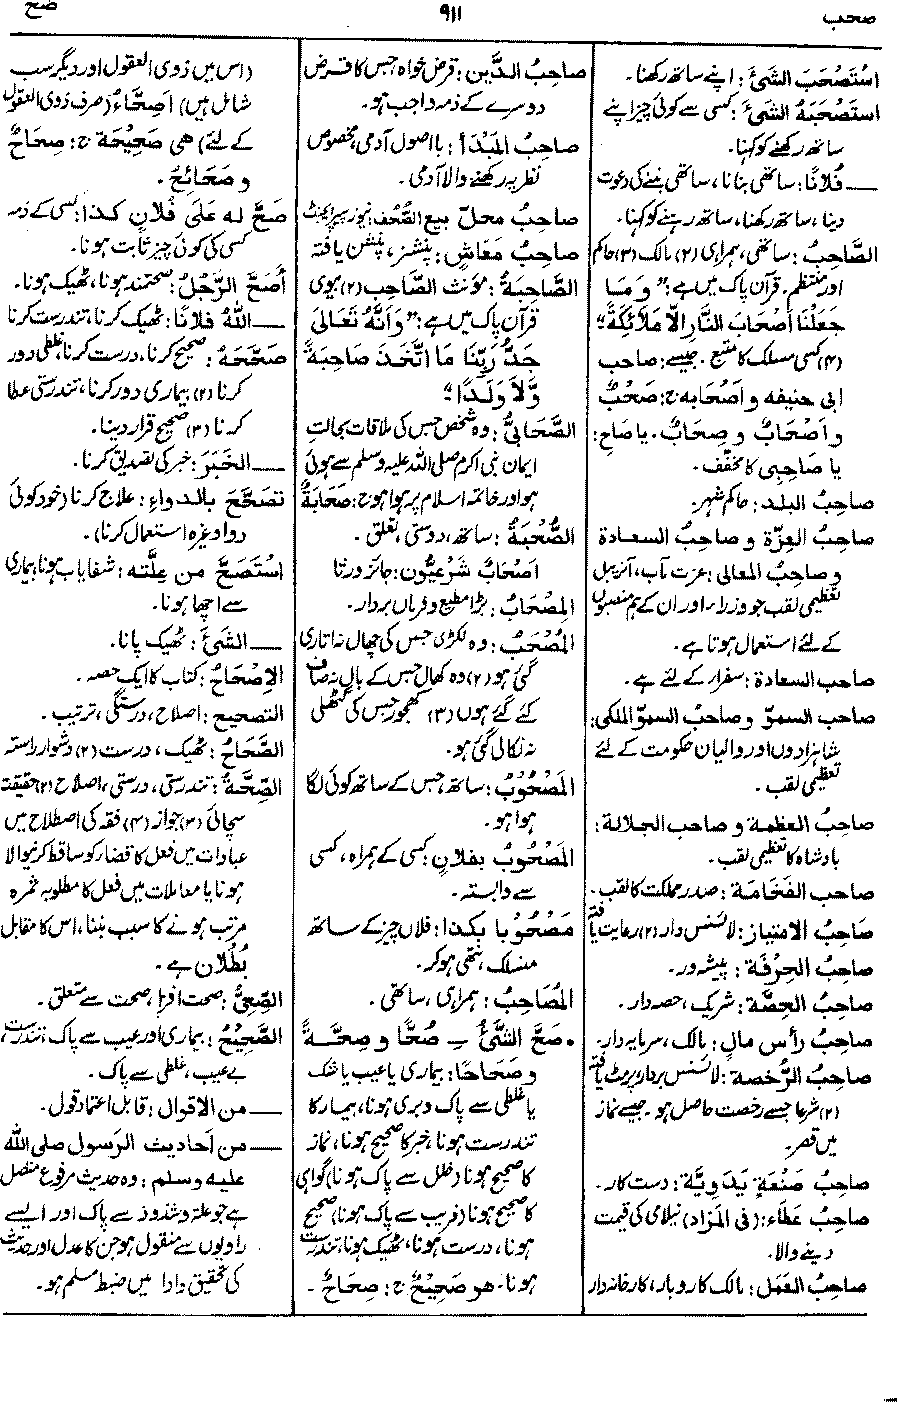 صحب
٩١١
صح
اسْتَصْحَبَ الشَّیْءَ: اپنے ساتھ رکھنا۔
اسْتَصْحَبَهُ الشَّیْءَ: کسی سے کوئی چیز اپنے
ساتھ رکھنے کو کہنا۔
— فُلَانًا: ساتھی بنانا، ساتھی بننے کی دعوت
دینا، ساتھ رکھنا، ساتھ رہنے کو کہنا۔
الصَّاحِبُ: ساتھی، ہمراہی (۲) مالک (۳) حاکم
اور منتظم۔ قرآن پاک میں ہے: "وَمَا
جَعَلْنَا أَصْحَابَ النَّارِ إِلَّا مَلَائِكَةً"
(۴) کسی مسلک کا متبع۔ جیسے: صاحب
ابی حنیفه و اصحابه ج: صَحْبٌ
و اَصْحَابٌ و صِحَابٌ۔ یا صَاحِ:
یا صَاحِبِی کا مخفف۔
صاحِبُ البلد: حاکم شہر۔
صاحِبُ العِزّة و صاحِبُ السعادة
و صاحِبُ المعالی: عزت مآب، آنریبل
تعظیمی لقب جو وزراء اور ان کے ہم منصبوں
کے لئے استعمال ہوتا ہے۔
صاحب السعادة: سفراء کے لئے ہے۔
صاحب السموّ و صاحبُ السموّ الملکی:
شاہزادوں اور والیان حکومت کے لئے
تعظیمی لقب۔
صاحِبُ العظمة و صاحب الجلالة:
بادشاہ کا تعظیمی لقب۔
صاحب الفَخَامَة: صدر مملکت کا لقب۔
صاحِبُ الامتیاز: لائسنس دار (۲) رعایت یافتہ
صاحِبُ الحِرْفَة: پیشہ ور۔
صاحِبُ الحِصَّة: شریک، حصہ دار۔
صاحِبُ رأس مالٍ: مالک، سرمایہ دار۔
صاحِبُ الرُّخصة: لائسنس بردار، پرمٹ یافتہ
(۲) شرعا جسے رخصت حاصل ہو۔ جیسے نماز
میں قصر۔
صاحِبُ صَنْعَةٍ یَدَوِیَّة: دست کار۔
صاحِبُ عَطَاء: (فی المَزَاد) نیلامی کی قیمت
دینے والا۔
صاحِبُ العَمَل: مالک کاروبار، کارخانہ دار
صاحِبُ الدَّین: قرض خواہ، جس کا قرض
دوسرے کے ذمہ واجب ہو۔
صاحِبُ المَبْدَأ: با اصول آدمی، مخصوص
نظریہ رکھنے والا آدمی۔
صاحِبُ محلّ بیع الصُّحُف: نیوز پیپر ایجنٹ
صاحِبُ مَعَاش: پنشنر، پنشن یافتہ
الصَّاحِبَةُ: مؤنث الصَّاحِب (۲) بیوی
قرآن پاک میں ہے: "وَأَنَّهُ تَعَالَىٰ
جَدُّ رَبِّنَا مَا اتَّخَذَ صَاحِبَةً
وَّلَا وَلَدًا"
الصَّحَابِیُّ: وہ شخص جس کی ملاقات بحالتِ
ایمان نبی اکرم صلی اللہ علیہ وسلم سے ہوئی
ہو اور خاتمہ اسلام پر ہوا ہو ج: صَحَابَةٌ
الصُّحْبَةُ: ساتھ، دوستی، تعلق۔
اَصْحَابٌ شَرْعِیُّون: جائز ورثا
المِصْحَابُ: بڑا مطیع و فرماں بردار۔
المُصْحَبُ: وہ لکڑی جس کی چھال نہ اتاری
گئی ہو (۲) وہ کھال جس کے بال نہ صاف
کئے گئے ہوں (۳) کھجور جس کی گٹھلی
نہ نکالی گئی ہو۔
المَصْحُوبُ: ساتھ، جس کے ساتھ کوئی لگا
ہوا ہو۔
المَصْحُوبُ بفلانٍ: کسی کے ہمراہ، کسی
سے وابستہ۔
مَصْحُوبًا بکذا: فلاں چیز کے ساتھ
منسلک، نتھی ہو کر۔
المُصَاحِبُ: ہمراہی، ساتھی۔
• صَحَّ الشَّیْءُ – صُحًّا و صِحَّةً
و صَحَاحًا: بیماری یا عیب یا شک
یا غلطی سے پاک و بری ہونا، بیمار کا
تندرست ہونا، خبر کا صحیح ہونا، نماز
کا صحیح ہونا (خلل سے پاک ہونا) گواہی
کا صحیح ہونا (فریب سے پاک ہونا) صحیح
ہونا، درست ہونا، ٹھیک ہونا، تندرست
ہونا۔ هو صَحِیْحٌ ج: صِحَاحٌ۔
(اس میں ذوی العقول اور دیگر سب
شامل ہیں) اَصِحَّاءُ (صرف ذوی العقول
کے لئے) هی صَحِیْحَة ج: صِحَاحٌ
و صَحَائِحُ۔
صَحَّ له عَلَی فُلَانٍ کَذَا: کسی کے ذمہ
کسی کی کوئی چیز ثابت ہونا۔
أَصَحَّ الرَّجُلُ: صحتمند ہونا، ٹھیک ہونا۔
— اللّٰهُ فلانًا: ٹھیک کرنا، تندرست کرنا
صَحَّحَهُ: صحیح کرنا، درست کرنا، غلطی دور
کرنا (۲) بیماری دور کرنا، تندرستی عطا
کرنا (۳) صحیح قرار دینا۔
— الخَبَرَ: خبر کی تصدیق کرنا۔
تَصَحَّحَ بالدواء: علاج کرنا (خود کوئی
دوا وغیرہ استعمال کرنا)۔
اسْتَصَحَّ من عِلَّتِه: شفایاب ہونا، بیماری
سے اچھا ہونا۔
— الشَّیْءَ: ٹھیک پانا۔
الاِصْحَاحُ: کتاب کا ایک حصہ۔
التصحیح: اصلاح، درستگی، ترتیب۔
الصَّحَاحُ: ٹھیک، درست (۲) دشوار راستہ
الصِّحَّةُ: تندرستی، درستی، اصلاح (۲) حقیقت
سچائی (۳) جواز (۴) فقہ کی اصطلاح میں
عبادات میں فعل کا قضاء کو ساقط کرنیوالا
ہونا یا معاملات میں فعل کا مطلوبہ ثمرہ
مرتب ہونے کا سبب بننا، اس کا مقابل
بُطْلَان ہے۔
الصِّحِّیُّ: صحت افزا، صحت سے متعلق۔
الصَّحِیْحُ: بیماری اور عیب سے پاک، تندرست،
بے عیب، غلطی سے پاک۔
— من الاقوال: قابل اعتماد قول۔
— من اَحادیث الرّسول صلی الله
علیه وسلم: وہ حدیث مرفوع متصل
ہے جو علت و شذوذ سے پاک اور ایسے
راویوں سے منقول ہو جن کا عدل اور حدیث
کی تحقیق و ادا میں ضبط مسلم ہو۔